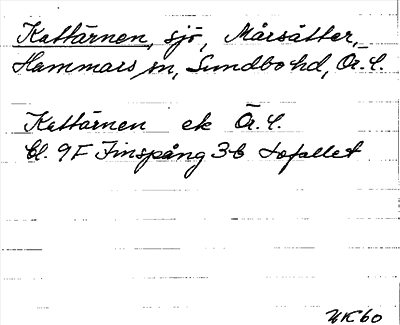 Kattärnen, sjö, Mårsätter,
Hammars sn, Sundbo hd, Ör. l.
Kattärnen ek Ör. l.
bl. 9F Finspång 3b Lofallet
NK60